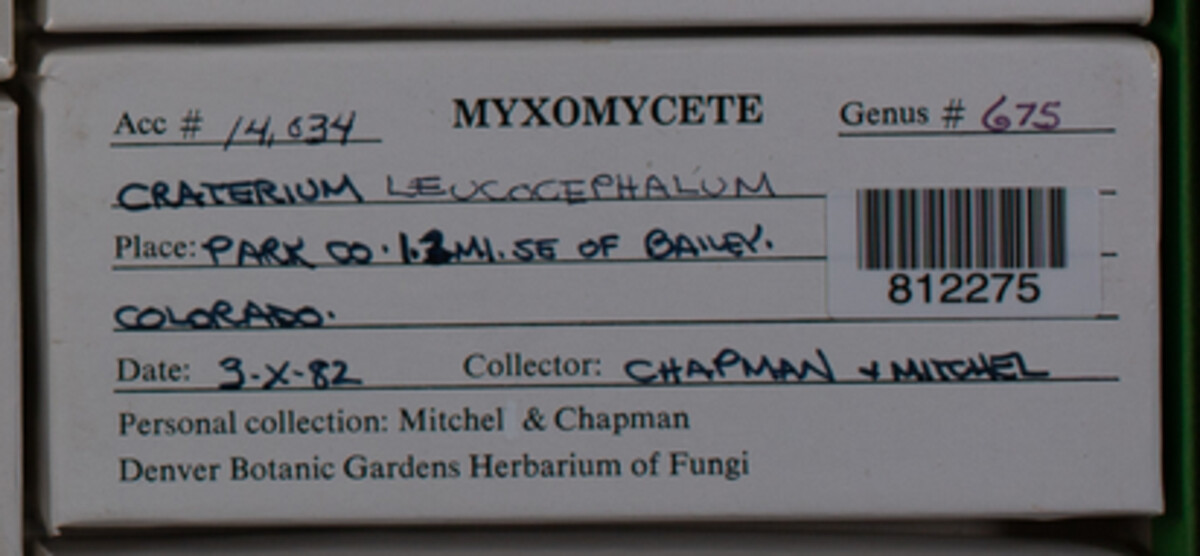 Acc # 14,634 MYXOMYCETE Genus # 675
CRATERIUM LEUCOCEPHALUM
Place: PARK CO. MI. SE OF BAILEY.
812275
COLORADO.
Date: 3-X-82 Collector: CHAPMAN & MITCHEL
Personal collection: Mitchel & Chapman
Denver Botanic Gardens Herbarium of Fungi